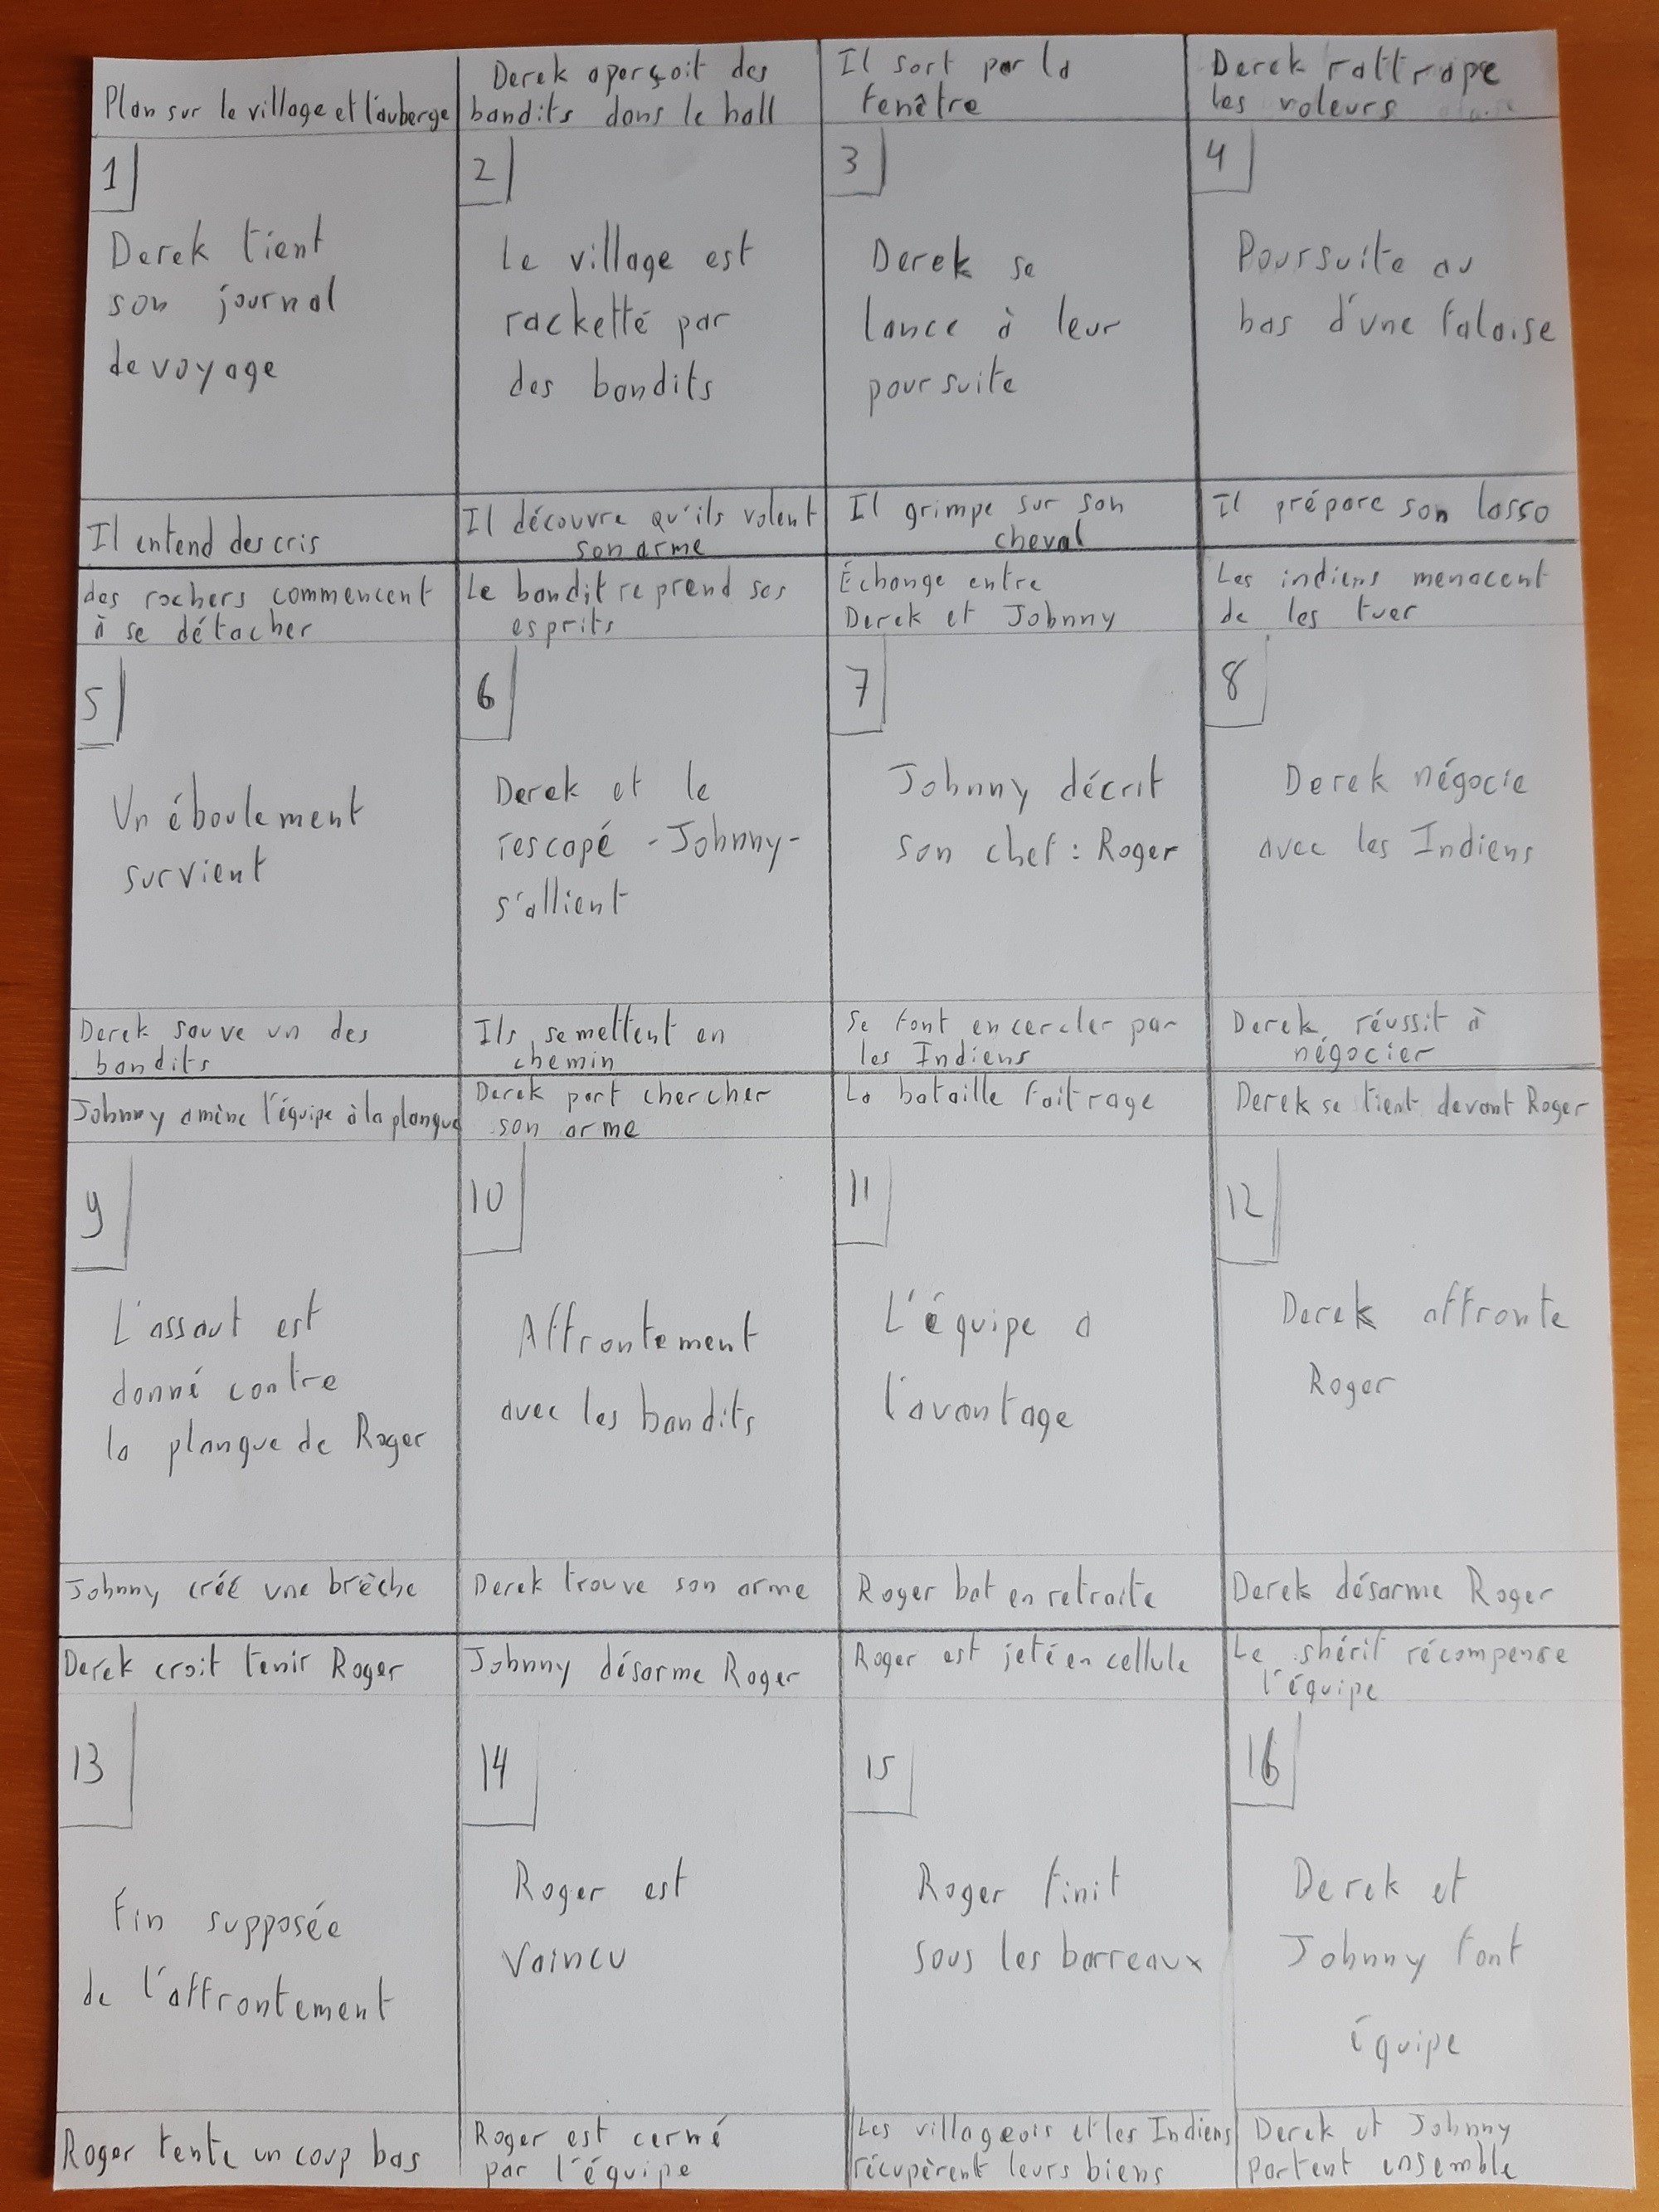 Plan sur le village et l'auberge
1
Derek tient
son journal
de voyage
Il entend des cris
Derek aperçoit des
bandits dans le hall
2
Le village est
racketté par
des bandits
Il découvre qu'ils volent
son arme
Il sort par la
fenêtre
3
Derek se
lance à leur
poursuite
Il grimpe sur son
cheval
Derek rattrape
les voleurs
4
Poursuite au
bas d'une falaise
Il prépare son lasso
des rochers commencent
à se détacher
5
Un éboulement
survient
Derek sauve un des
bandits
Le bandit reprend ses
esprits
6
Derek et le
rescapé - Johnny -
s'allient
Ils se mettent en
chemin
Échange entre
Derek et Johnny
7
Johnny décrit
son chef : Roger
Se font encercler par
les Indiens
Les indiens menacent
de les tuer
8
Derek négocie
avec les Indiens
Derek réussit à
négocier
Johnny amène l'équipe à la planque
9
L'assaut est
donné contre
la planque de Roger
Johnny créé une brèche
Derek part chercher
son arme
10
Affrontement
avec les bandits
Derek trouve son arme
La bataille fait rage
11
L'équipe a
l'avantage
Roger bat en retraite
Derek se tient devant Roger
12
Derek affronte
Roger
Derek désarme Roger
Derek croit tenir Roger
13
Fin supposée
de l'affrontement
Roger tente un coup bas
Johnny désarme Roger
14
Roger est
vaincu
Roger est cerné
par l'équipe
Roger est jeté en cellule
15
Roger finit
sous les barreaux
Les villageois et les Indiens
récupèrent leurs biens
Le shérif récompense
l'équipe
16
Derek et
Johnny font
équipe
Derek et Johnny
partent ensemble